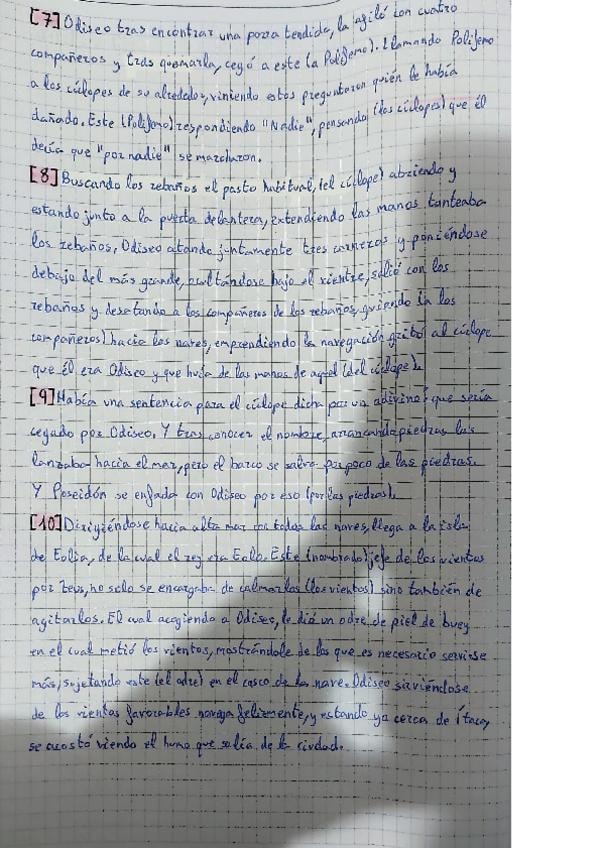 [7] Odiseo tras encontrar una porra tendida, la afiló con cuatro
compañeros y tras quemarla, cegó a este (a Polifemo). Llamando Polifemo
a los cíclopes de su alrededor, viniendo estos preguntaron quién le había
dañado. Este (Polifemo) respondiendo "Nadie", pensando (los cíclopes) que él
decía que "por nadie" se marcharon.
[8] Buscando los rebaños el pasto habitual, (el cíclope) abriendo y
estando junto a la puerta delantera, extendiendo las manos tanteaba
los rebaños, Odiseo atando juntamente tres carneros y poniéndose
debajo del más grande, ocultándose bajo el vientre, salió con los
rebaños y desatando a los compañeros de los rebaños, guiando (a los
compañeros) hacia las naves, emprendiendo la navegación gritó al cíclope
que él era Odiseo y que huía de las manos de aquel (del cíclope).
[9] Había una sentencia para el cíclope dicha por un adivino: que sería
cegado por Odiseo. Y tras conocer el nombre, arrancando piedras las
lanzaba hacia el mar, pero el barco se salva por poco de las piedras.
Y Poseidón se enfada con Odiseo por eso (por las piedras).
[10] Dirigiéndose hacia alta mar con todas las naves, llega a la isla
de Eolia, de la cual el rey era Eolo. Este (nombrado) jefe de los vientos
por Zeus, no solo se encargaba de calmarlos (los vientos) sino también de
agitarlos. El cual acogiendo a Odiseo, le dió un odre de piel de buey
en el cual metió los vientos, mostrándole de los que es necesario servirse
más, sujetando este (el odre) en el casco de la nave. Odiseo sirviéndose
de los vientos favorables navega felizmente, y estando ya cerca de Ítaca,
se acostó viendo el humo que salía de la ciudad.